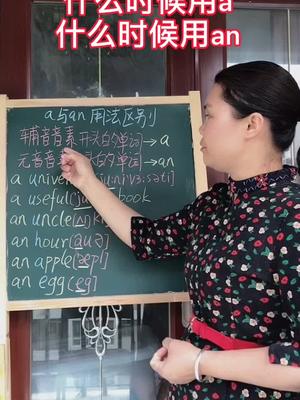 什么时候用a
什么时候用an
a与an用法区别
辅音音素开头的单词→a
元音音素开头的单词→an
a univer [ju:nɪvɜ:səti]
a useful [ju book
an uncle [ʌ
an hour [aʊə]
an apple [æpl]
an egg [eg]